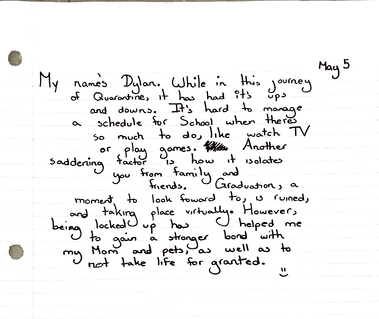 May 5
My name's Dylan. While in this journey
of Quarantine, it has had it's ups
and downs. It's hard to manage
a schedule for School when theres
so much to do, like watch TV
or play games. Another
saddening factor is how it isolates
you from family and
friends. Graduation, a
moment to look foward to, is ruined,
and taking place virtually. However,
being locked up has helped me
to gain a stronger bond with
my Mom and pets, as well as to
not take life for granted.